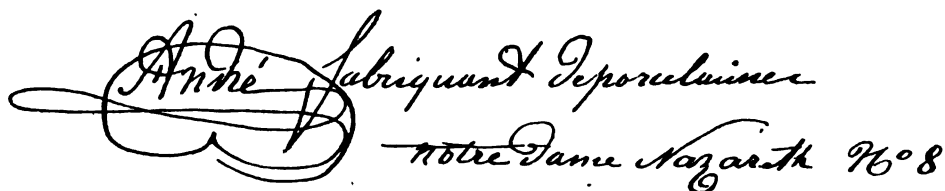 André fabriquant de porcelaines
notre Dame Nazareth No 8